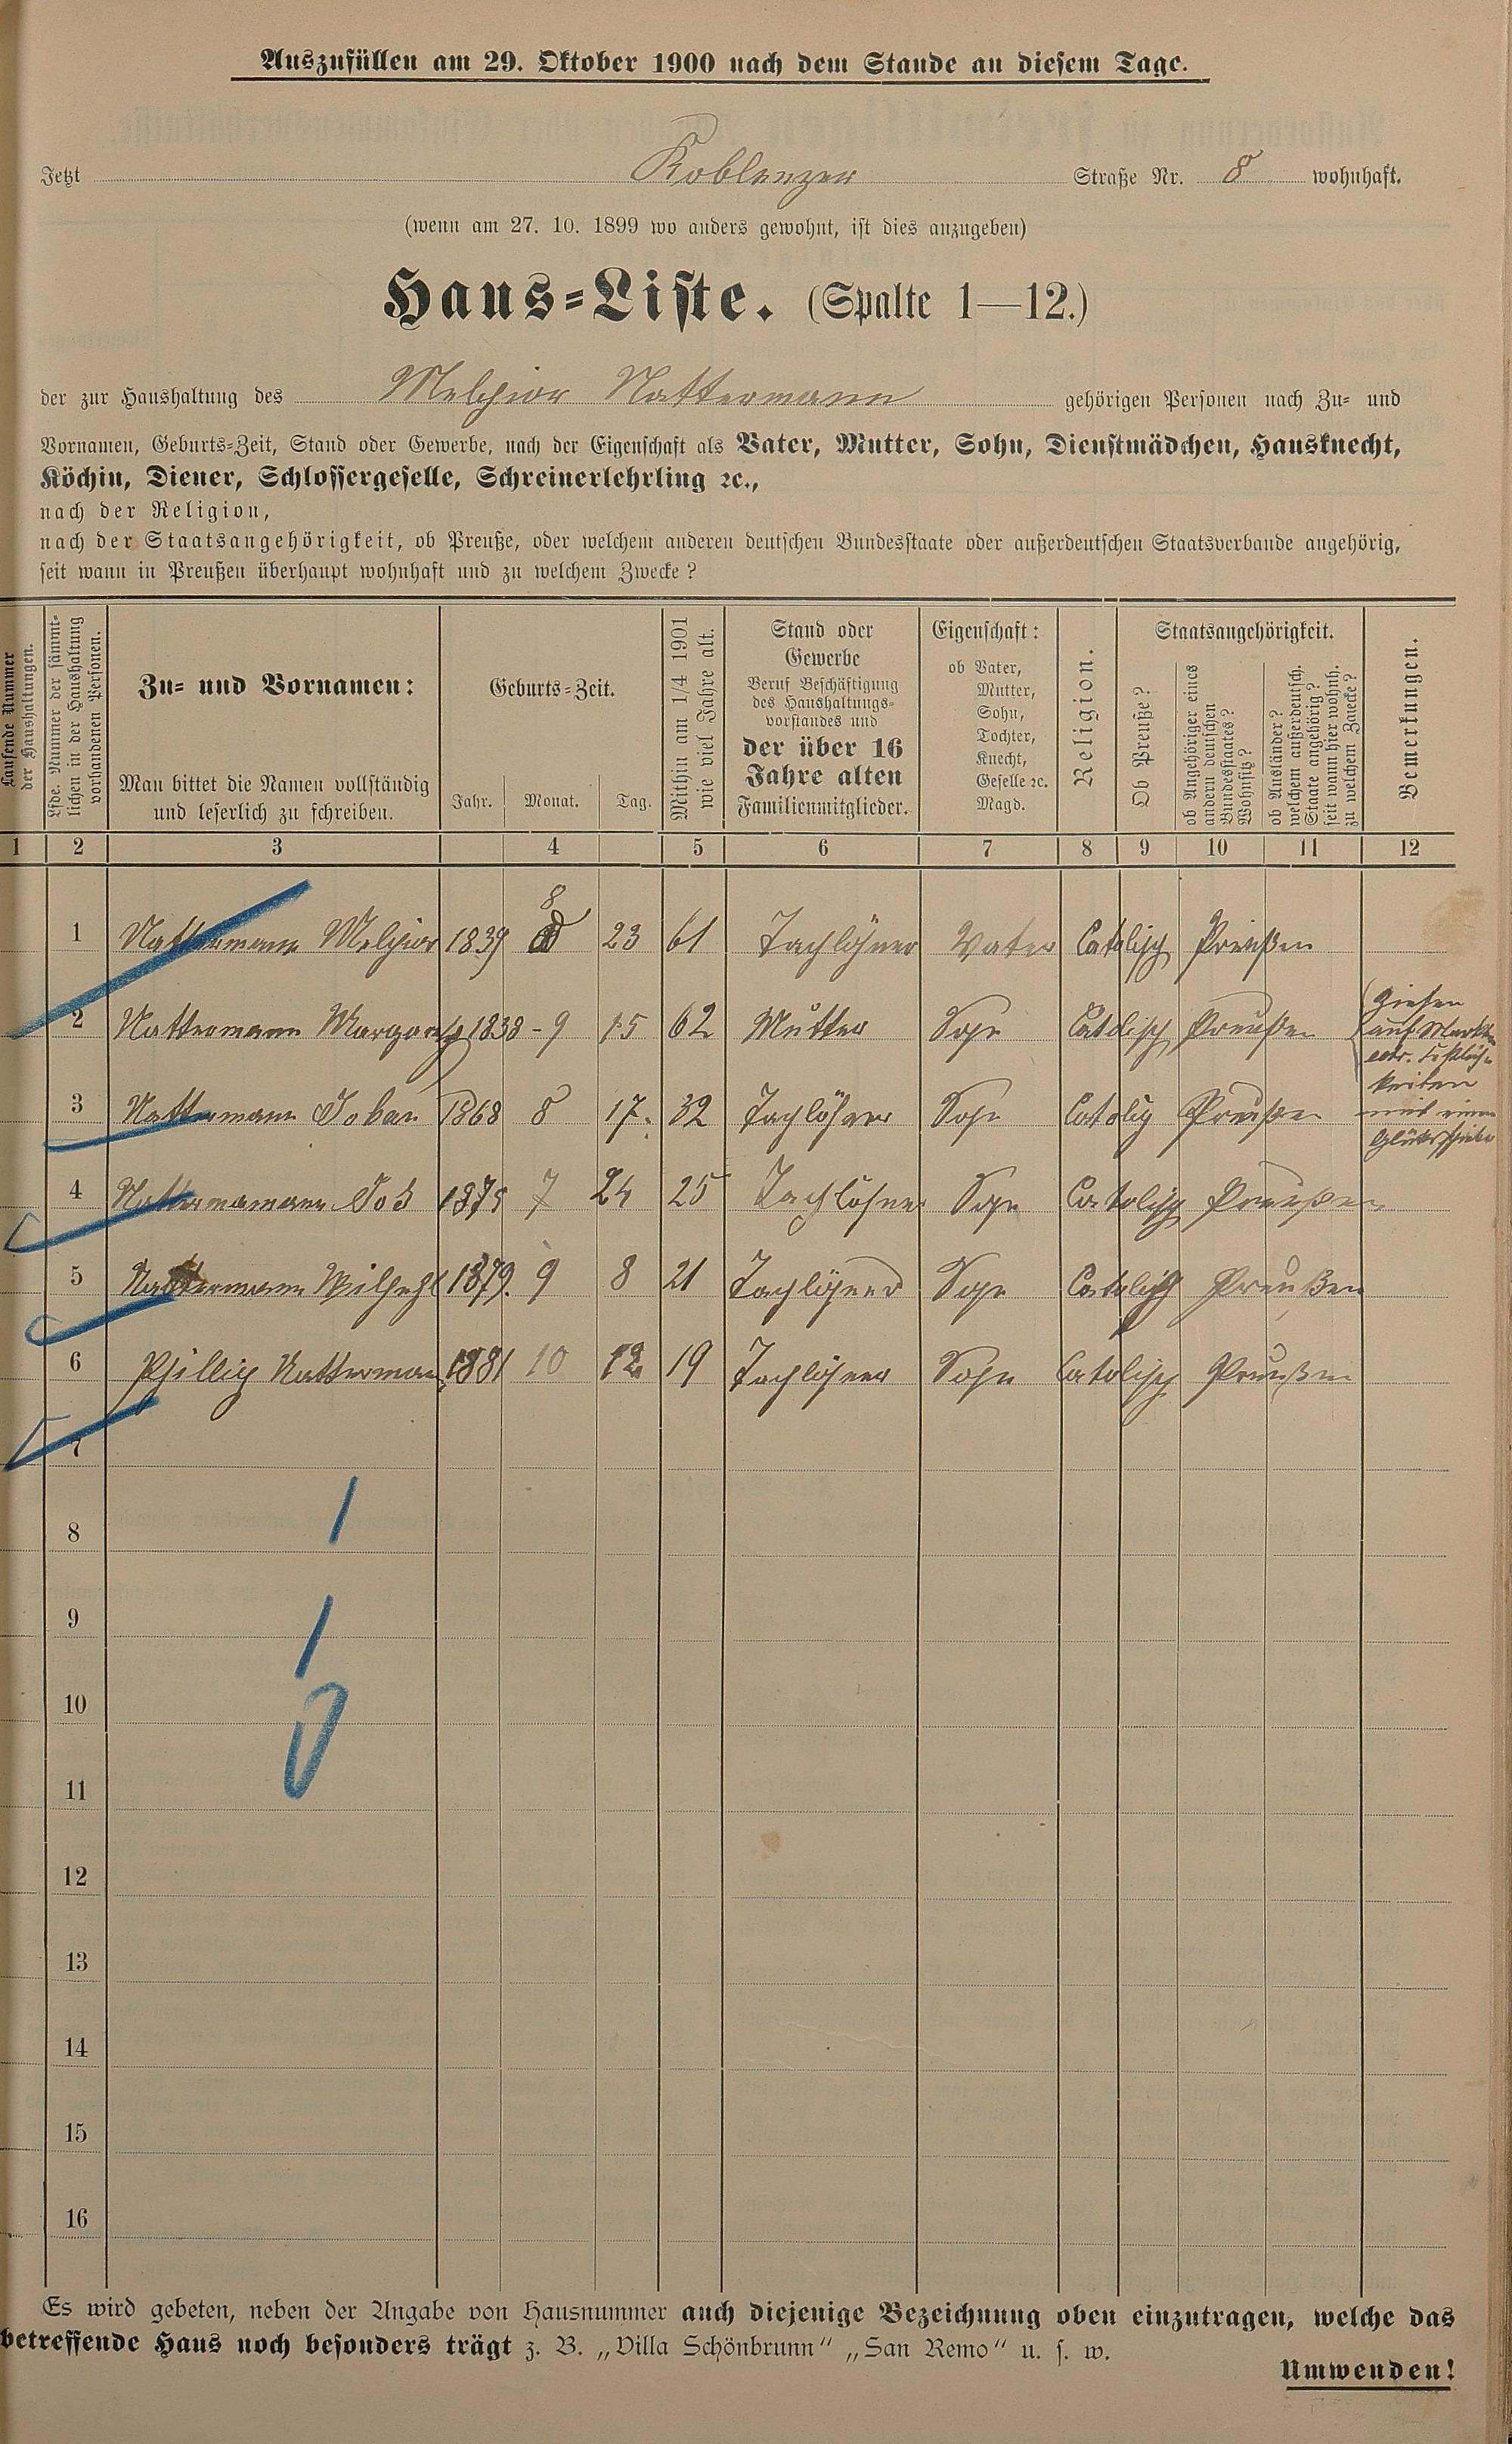 Auszufüllen am 29. Oktober 1900 nach dem Stande an diesem Tage.
Jetzt Koblenzer Straße Nr. 8 wohnhaft.
(wenn am 27. 10. 1899 wo anders gewohnt, ist dies anzugeben)
Haus-Liste. (Spalte 1—12.)
der zur Haushaltung des Melchior Nattermann gehörigen Personen nach Zu- und
Vornamen, Geburts-Zeit, Stand oder Gewerbe, nach der Eigenschaft als Vater, Mutter, Sohn, Dienstmädchen, Hausknecht,
Köchin, Diener, Schlossergeselle, Schreinerlehrling ꝛc.,
nach der Religion,
nach der Staatsangehörigkeit, ob Preuße, oder welchem anderen deutschen Bundesstaate oder außerdeutschen Staatsverbande angehörig,
seit wann in Preußen überhaupt wohnhaft und zu welchem Zwecke?
Laufende Nummer
der Haushaltungen.
Lfde. Nummer der sämmt-
lichen in der Haushaltung
vorhandenen Personen.
Zu- und Vornamen:
Man bittet die Namen vollständig
und leserlich zu schreiben.
Geburts-Zeit.
Jahr. Monat. Tag.
Mithin am 1/4 1901
wie viel Jahre alt.
Stand oder
Gewerbe
Beruf Beschäftigung
des Haushaltungs-
vorstandes und
der über 16
Jahre alten
Familienmitglieder.
Eigenschaft:
ob Vater,
Mutter,
Sohn,
Tochter,
Knecht,
Geselle ꝛc.
Magd.
Religion.
Staatsangehörigkeit.
Ob Preuße?
ob Angehöriger eines
andern deutschen
Bundesstaates?
Wohnsitz?
ob Ausländer?
welchem außerdeutsch.
Staate angehörig?
seit wann hier wohnh.
zu welchem Zwecke?
Bemerkungen.
1 2 3 4 5 6 7 8 9 10 11 12
1 Nattermann Melchior 1839 8 23 61 Tachlöhner Vater Catolisch Preußen
2 Nattermann 1838 - 9 15 62 Mutter Sohn Catolisch Preußen
3 Nattermann Johan 1868 8 17. 32 Tachlöhner Sohn Preußen
4 Nattermamann Joh 1875 7 24 25 Tachlöhner Sohn Catolisch Preußen
5 Nattermann 1879. 9 8 21 Tachlöhner Sohn Catolisch Preußen
6 Phillip Natterman 1881 10 12 19 Tachlöhner Sohn Catolisch Preußen
auf
mit
7
8
9
10
11
12
13
14
15
16
Es wird gebeten, neben der Angabe von Hausnummer auch diejenige Bezeichnung oben einzutragen, welche das
betreffende Haus noch besonders trägt z. B. „Villa Schönbrunn“ „San Remo“ u. s. w.
Umwenden!